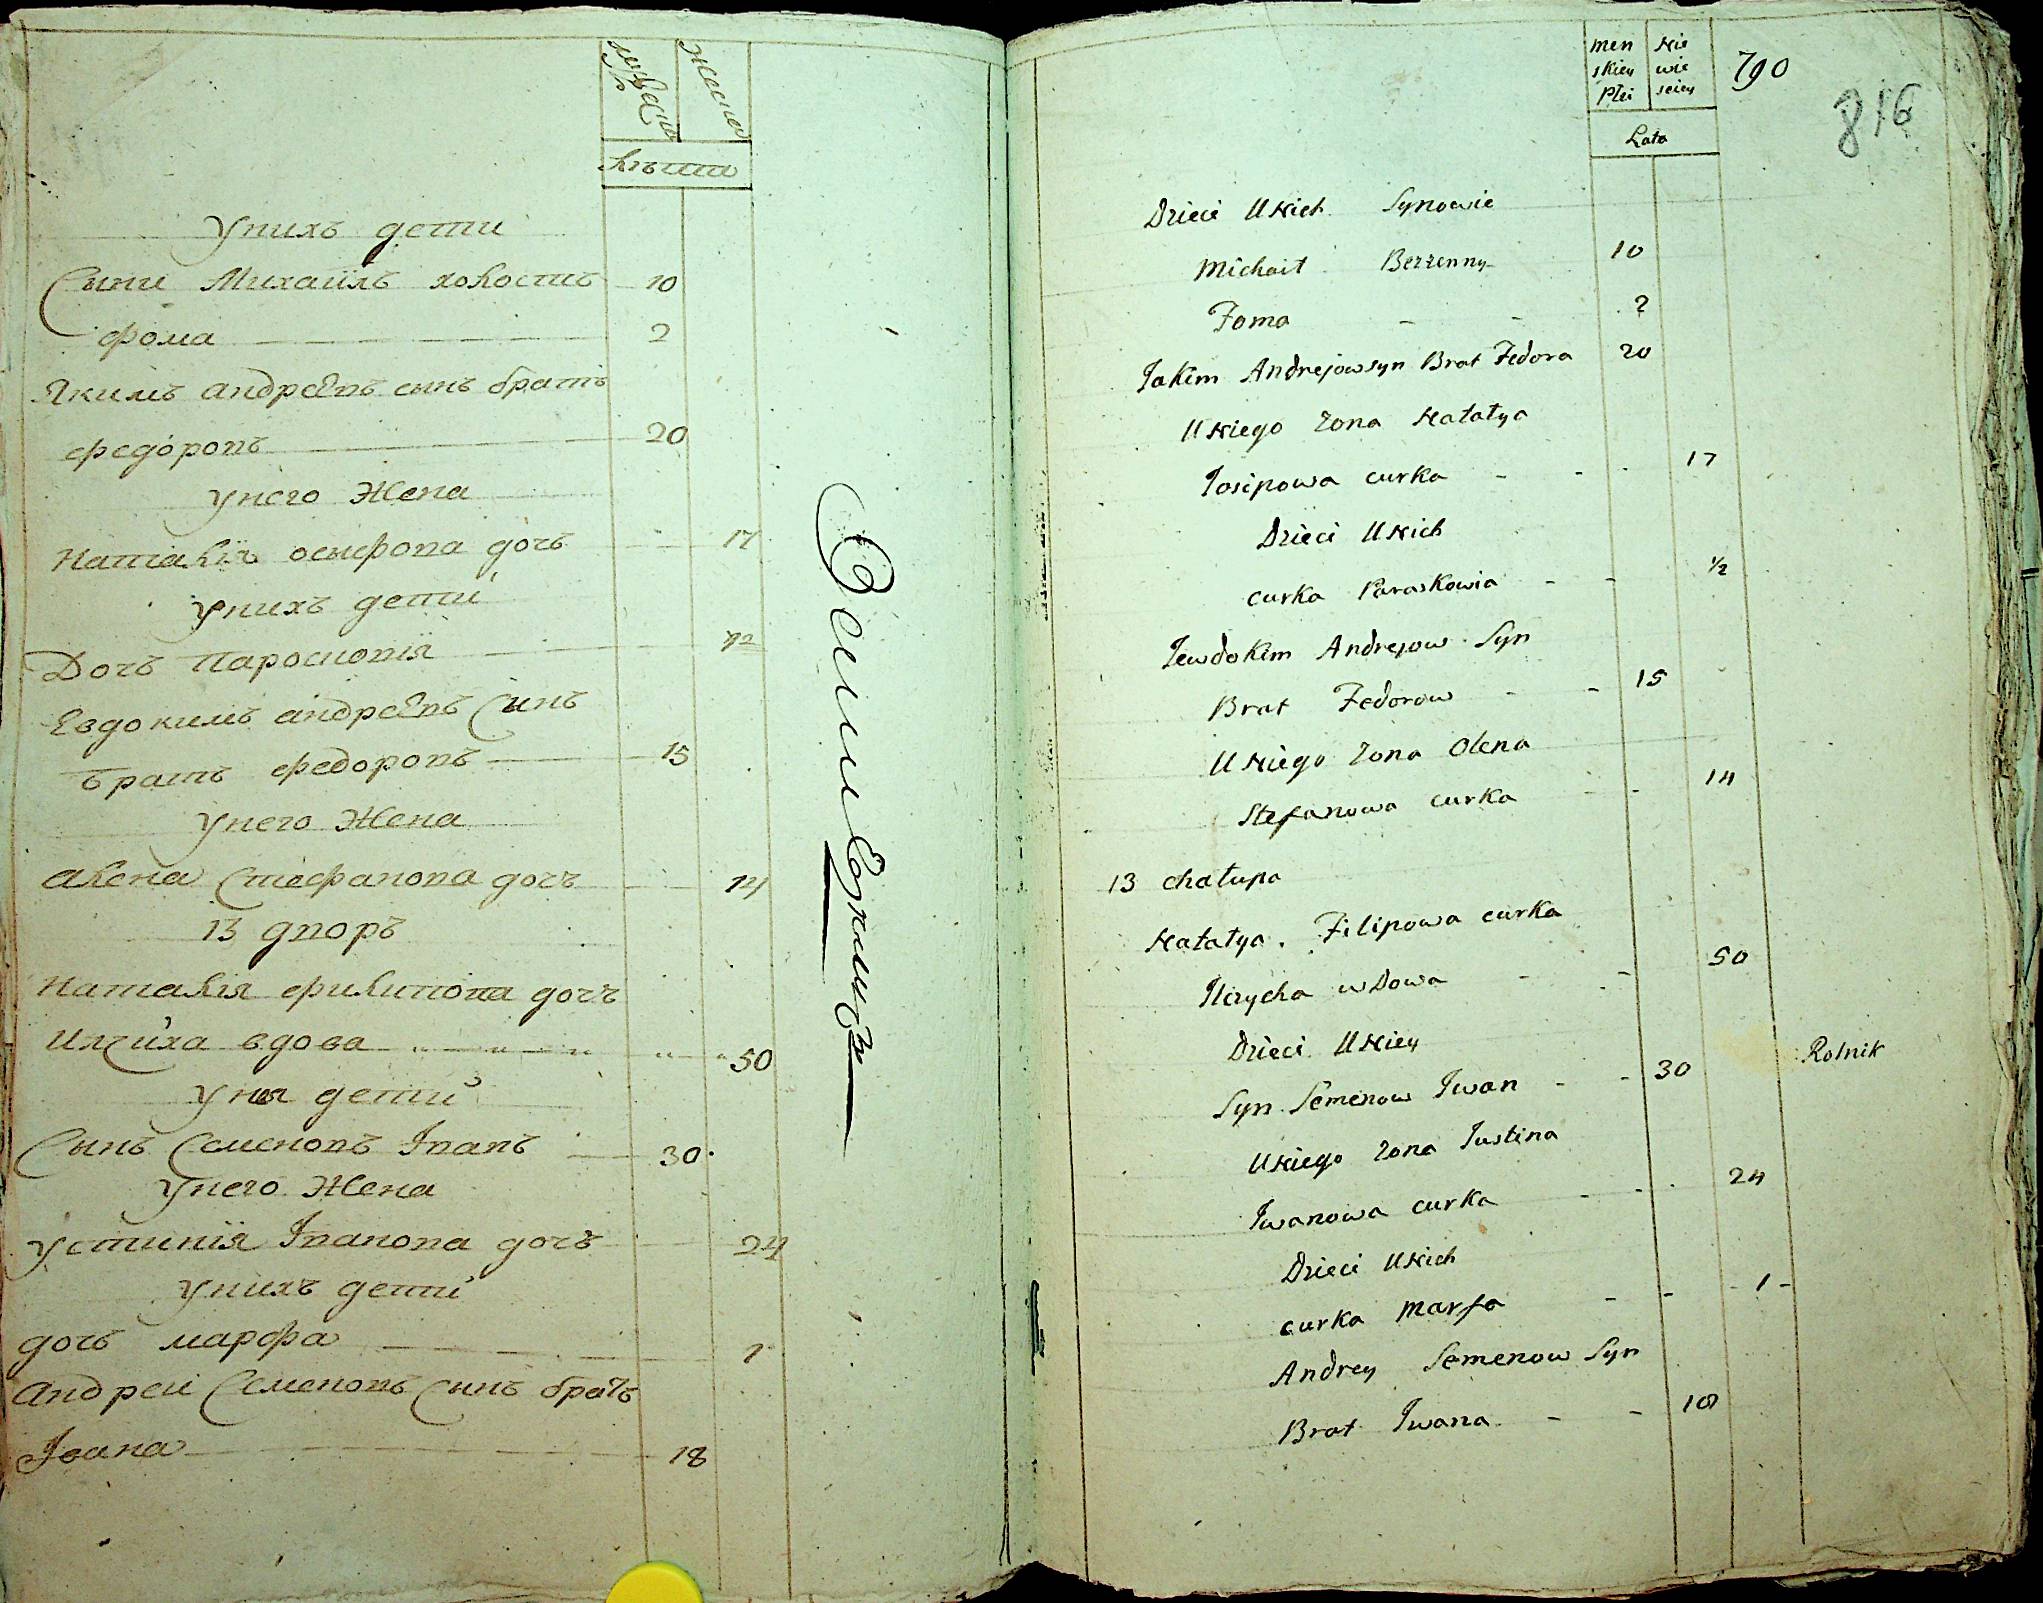 Женска
лѣта
Унихъ дети
Сыни Михаилъ холостъ 10
Фома 2
Якимъ андреевъ сынъ братъ
федоровъ 20
Унего Жена
Наталія осифова дочъ 17
Унихъ дети
Дочъ Паросковія 1/2
Евдокимъ андреевъ Синъ
братъ федоровъ 15
Унего Жена
Алена Стефанова дочъ 14
13 дворъ
Наталія филипова дочъ
Илчиха вдова 50
Унея дети
Сынъ Семеновъ Іванъ 30
Унего Жена
Устинія Іванова дочъ 24
Унихъ дети
дочъ марфа 1
Андреи Семеновъ Синъ братъ
Івана 18
men Nie
skiey wie
Płci sciey
790
816
Lata
Dzieci U Nich Synowie
Michait Bezzenny 10
Foma 2
Jakim Andrejow syn Brat Fedora 20
U Niego Zona Natatya
Josipowa curka 17
Dzieci U Nich
curka Paraskowia 1/2
Jewdokim Andrejow Syn
Brat Fedorow 15
U Niego Zona Olena
Stefanowa curka 14
13 chatupa
Natatya Filipowa curka
Ilczycha wdowa 50
Dzieci U Niey
Syn Semenow Iwan 30 Rolnik
U Niego Zona Justina
Iwanowa curka 24
Dzieci U Nich
curka Marfa 1
Andrey Semenow Syn
Brat Iwana 18